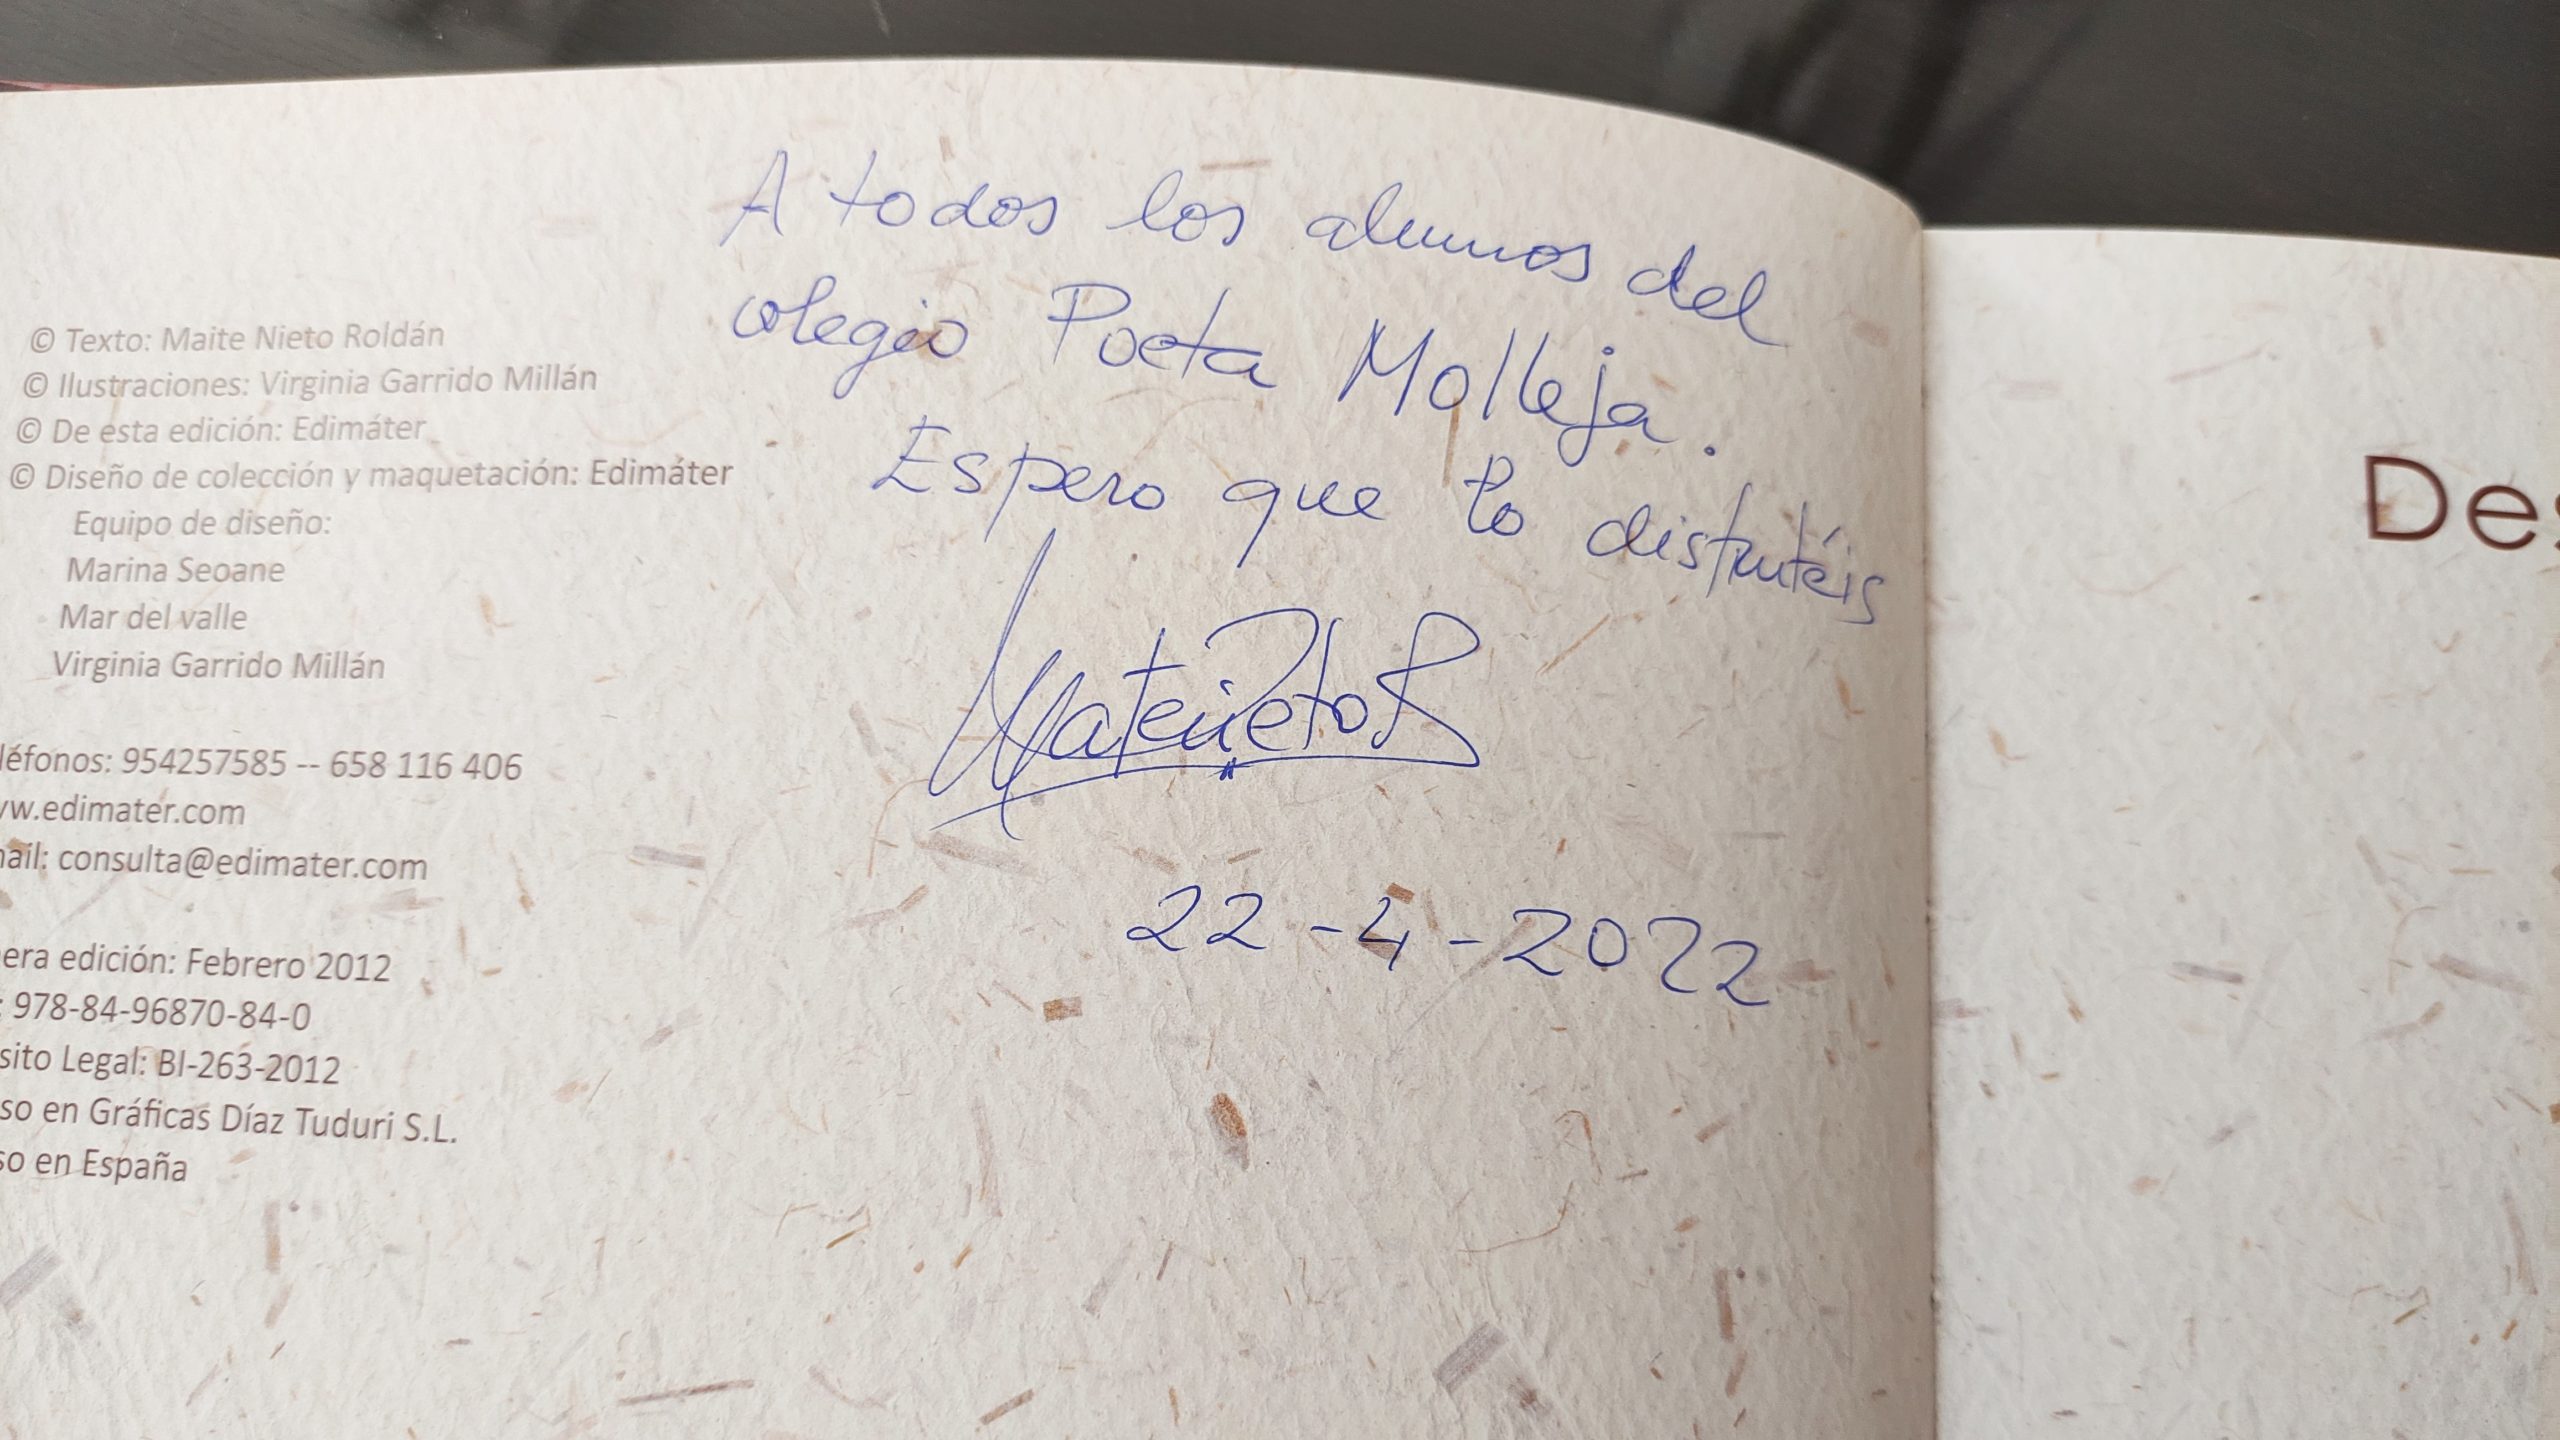 A todos los alumnos del
colegio Poeta Molleja.
Espero que lo disfrutéis
22-4-2022
© Texto: Maite Nieto Roldán
© Ilustraciones: Virginia Garrido Millán
© De esta edición: Edimáter
© Diseño de colección y maquetación: Edimáter
Equipo de diseño:
Marina Seoane
Mar del valle
Virginia Garrido Millán
léfonos: 954257585 -- 658 116 406
w.edimater.com
ail: consulta@edimater.com
era edición: Febrero 2012
: 978-84-96870-84-0
sito Legal: BI-263-2012
so en Gráficas Díaz Tuduri S.L.
so en España
Des